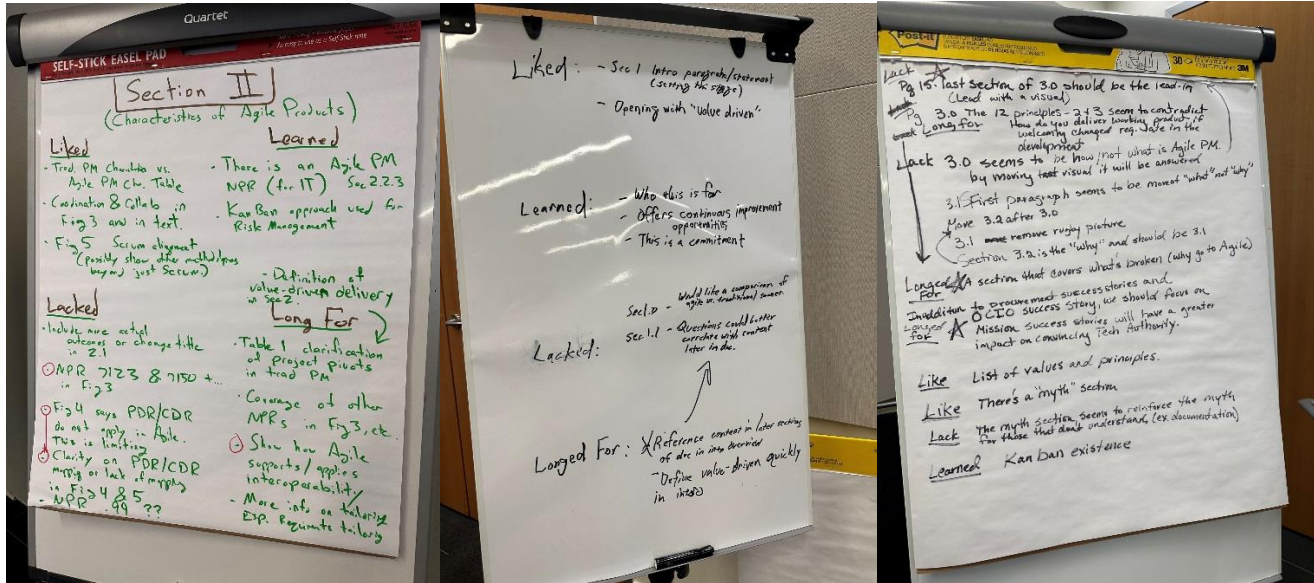 Quartet
SELF-STICK EASEL PAD
Section II
(Characteristics of Agile Products)
Liked
- Trad. PM vs.
Agile PM Table
- Coordination & Collab in
Fig 3 and in text.
- Fig 5 Scrum alignment
(possibly show other methodologies
beyond just Scrum)
Lacked
- Include more actual
outcomes or change title
in 2.1
- NPR 7123 & 7150 + ...
in Fig 3
- Fig 4 says PDR/CDR
do not apply in Agile.
This is limiting
- Clarity on PDR/CDR
mapping or lack of mapping
in Fig 4 & 5
- NPR .99 ??
Learned
- There is an Agile PM
NPR (for IT) Sec 2.2.3
- KanBan approach used for
Risk Management
- Definition of
value-driven delivery
in Sec 2.
Long For
- Table 1 clarification
of project pivots
in trad PM
- Coverage of other
NPRs in Fig 3, etc.
- Show how Agile
supports/applies
interoperability
- More info on tailoring
Esp. Requirements tailoring
Liked: - Sec 1 Intro paragraph/statement
(setting the stage)
- Opening with "value driven"
Learned: - Who this is for
- Offers continuous improvement
opportunities
- This is a commitment
Lacked:
Sec 1.0 - Would like a comparison of
agile vs. traditional sooner
Sec 1.1 - Questions could better
correlate with content
later in doc.
Longed For: Reference content in later sections
of doc in intro/overview
- Define value-driven quickly
in intro
Post-it
30
3M
Lack
Pg 15. last section of 3.0 should be the lead-in
(Lead with a visual)
Pg 3.0 The 12 principles - 2 & 3 seem to contradict
Long for How do you deliver working product if
welcoming changed req. late in the
development
Lack 3.0 seems to be how/not what is Agile PM.
by moving visual it will be answered
3.1 First paragraph seems to be more of "what" not "why"
Move 3.2 after 3.0
3.1 remove rugby picture
Section 3.2 is the "why" and should be 3.1
Longed For A section that covers what's broken (why go to Agile)
In addition to procurement success stories and
Longed for OCIO success story, we should focus on
Mission success stories will have a greater
impact on convincing Tech Authority.
Like List of values and principles.
Like There's a "myth" section
Lack The myth section seem to reinforce the myth
for those that don't understand, (ex. documentation)
Learned Kanban existence